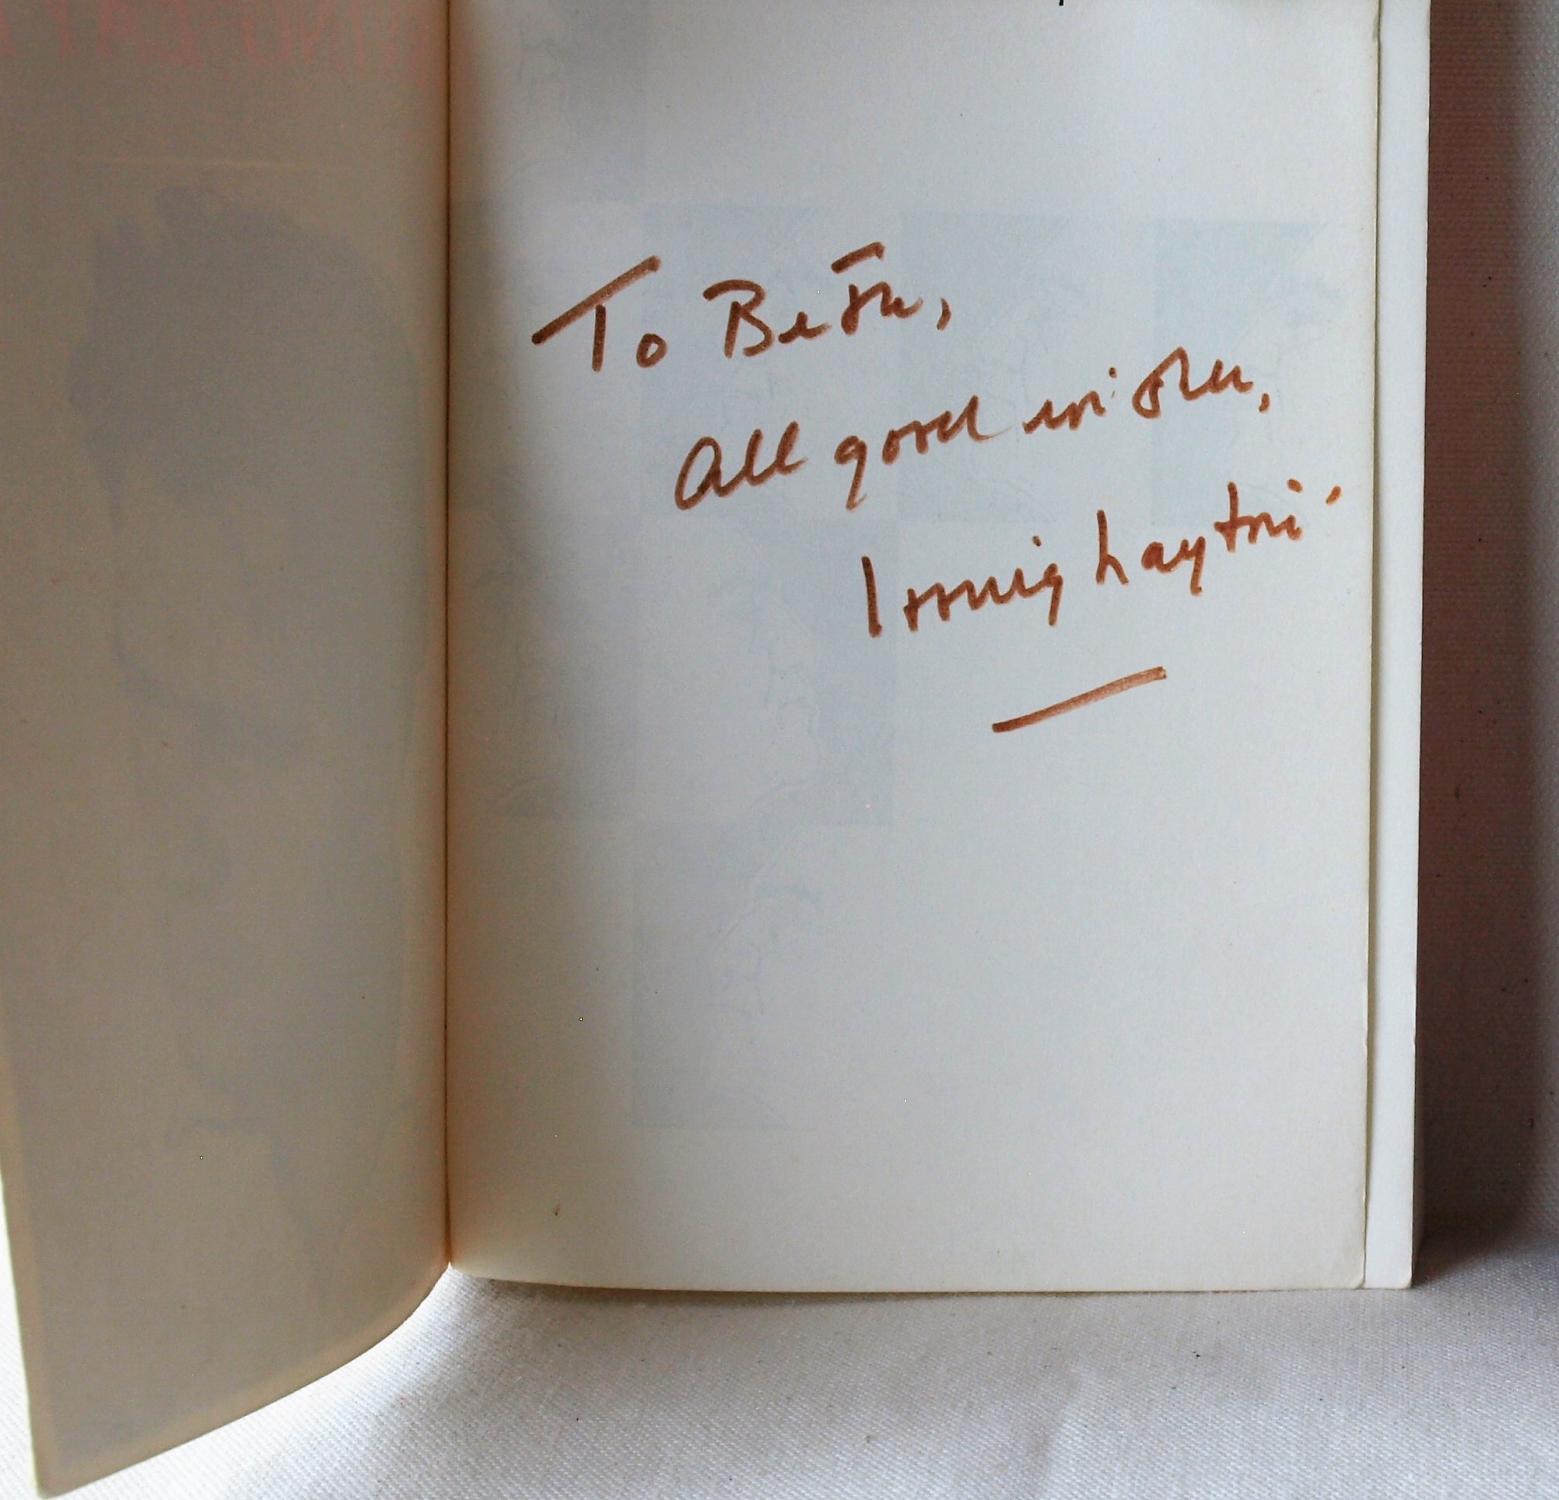 To Beth,
All good wishes,
Irving Layton